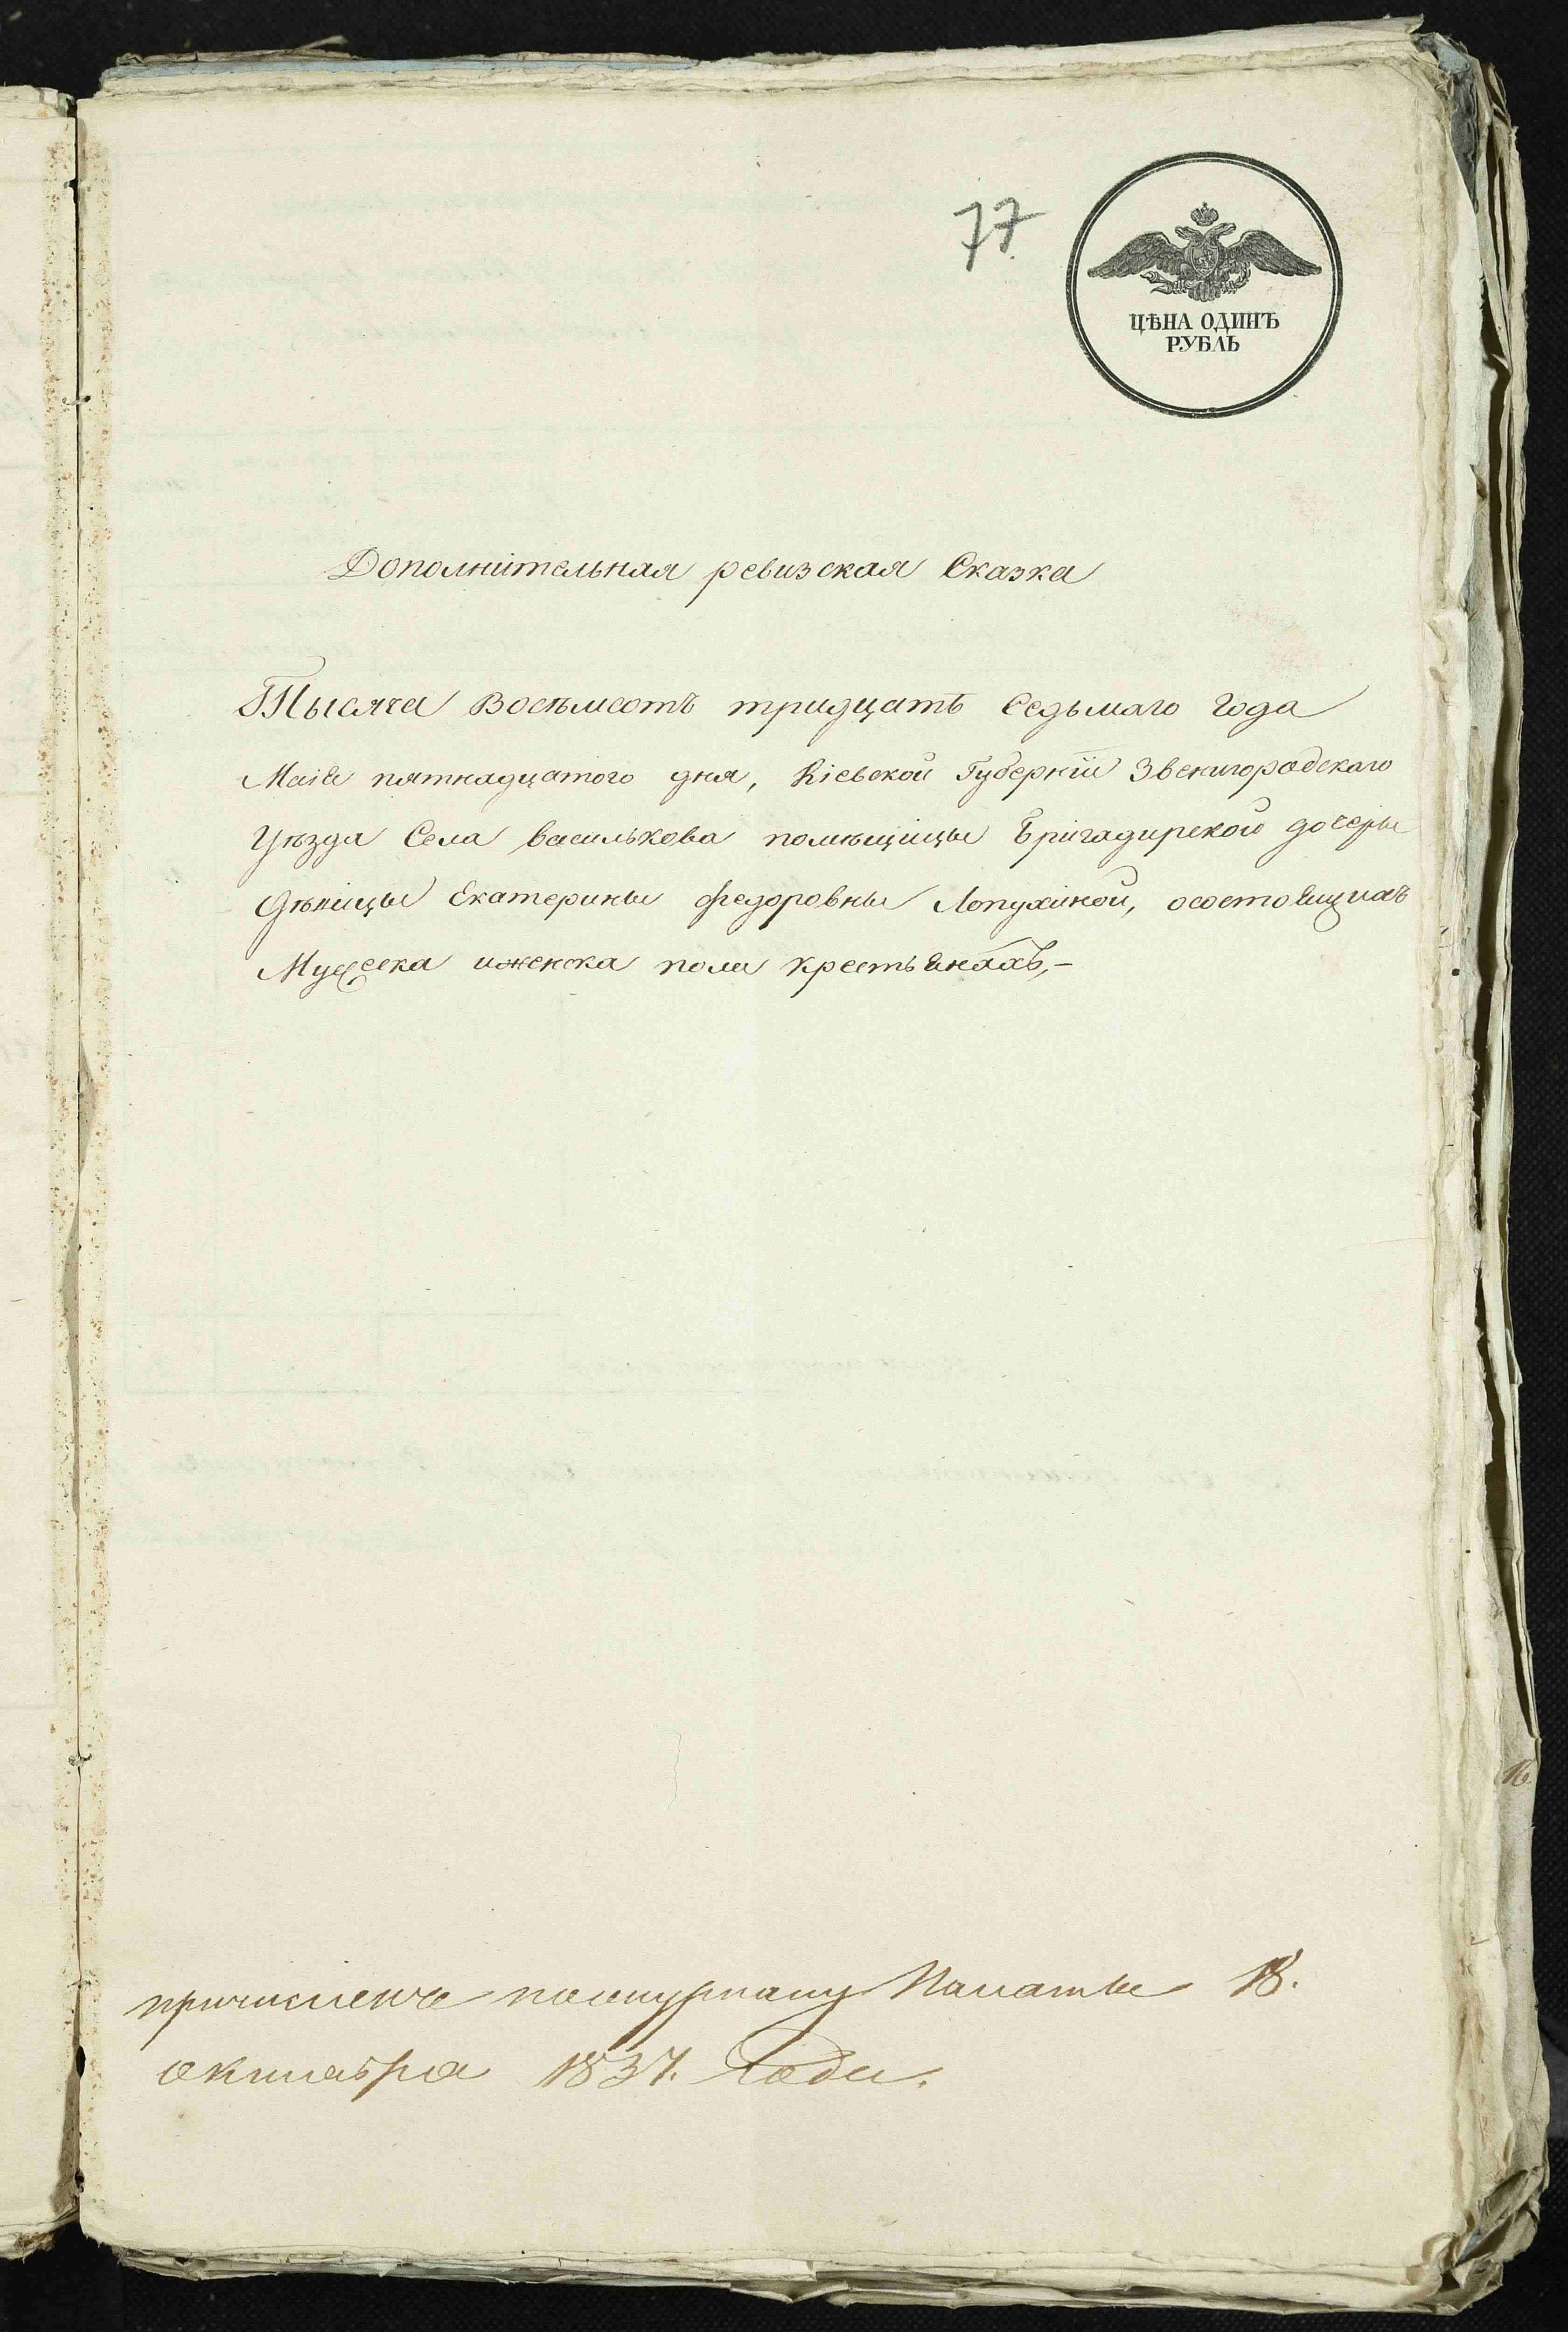 77
ЦѢНА ОДИНЪ
РУБЛЬ
Дополнительная ревизская Сказка
Тысяча Восемьсотъ тридцать Седьмаго Года
Маія пятнадцатого дня, Кіевской Губерніи Звенигородскаго
Уѣзда Села Василькова помѣщицы Бригадирской дочеры
Дѣвицы Екатерины Федоровны Лопухиной, осостоящихъ
Мужеска иженска пола крестьянахъ,-
причислена Палаты 18.
октября 1837. Года.
16